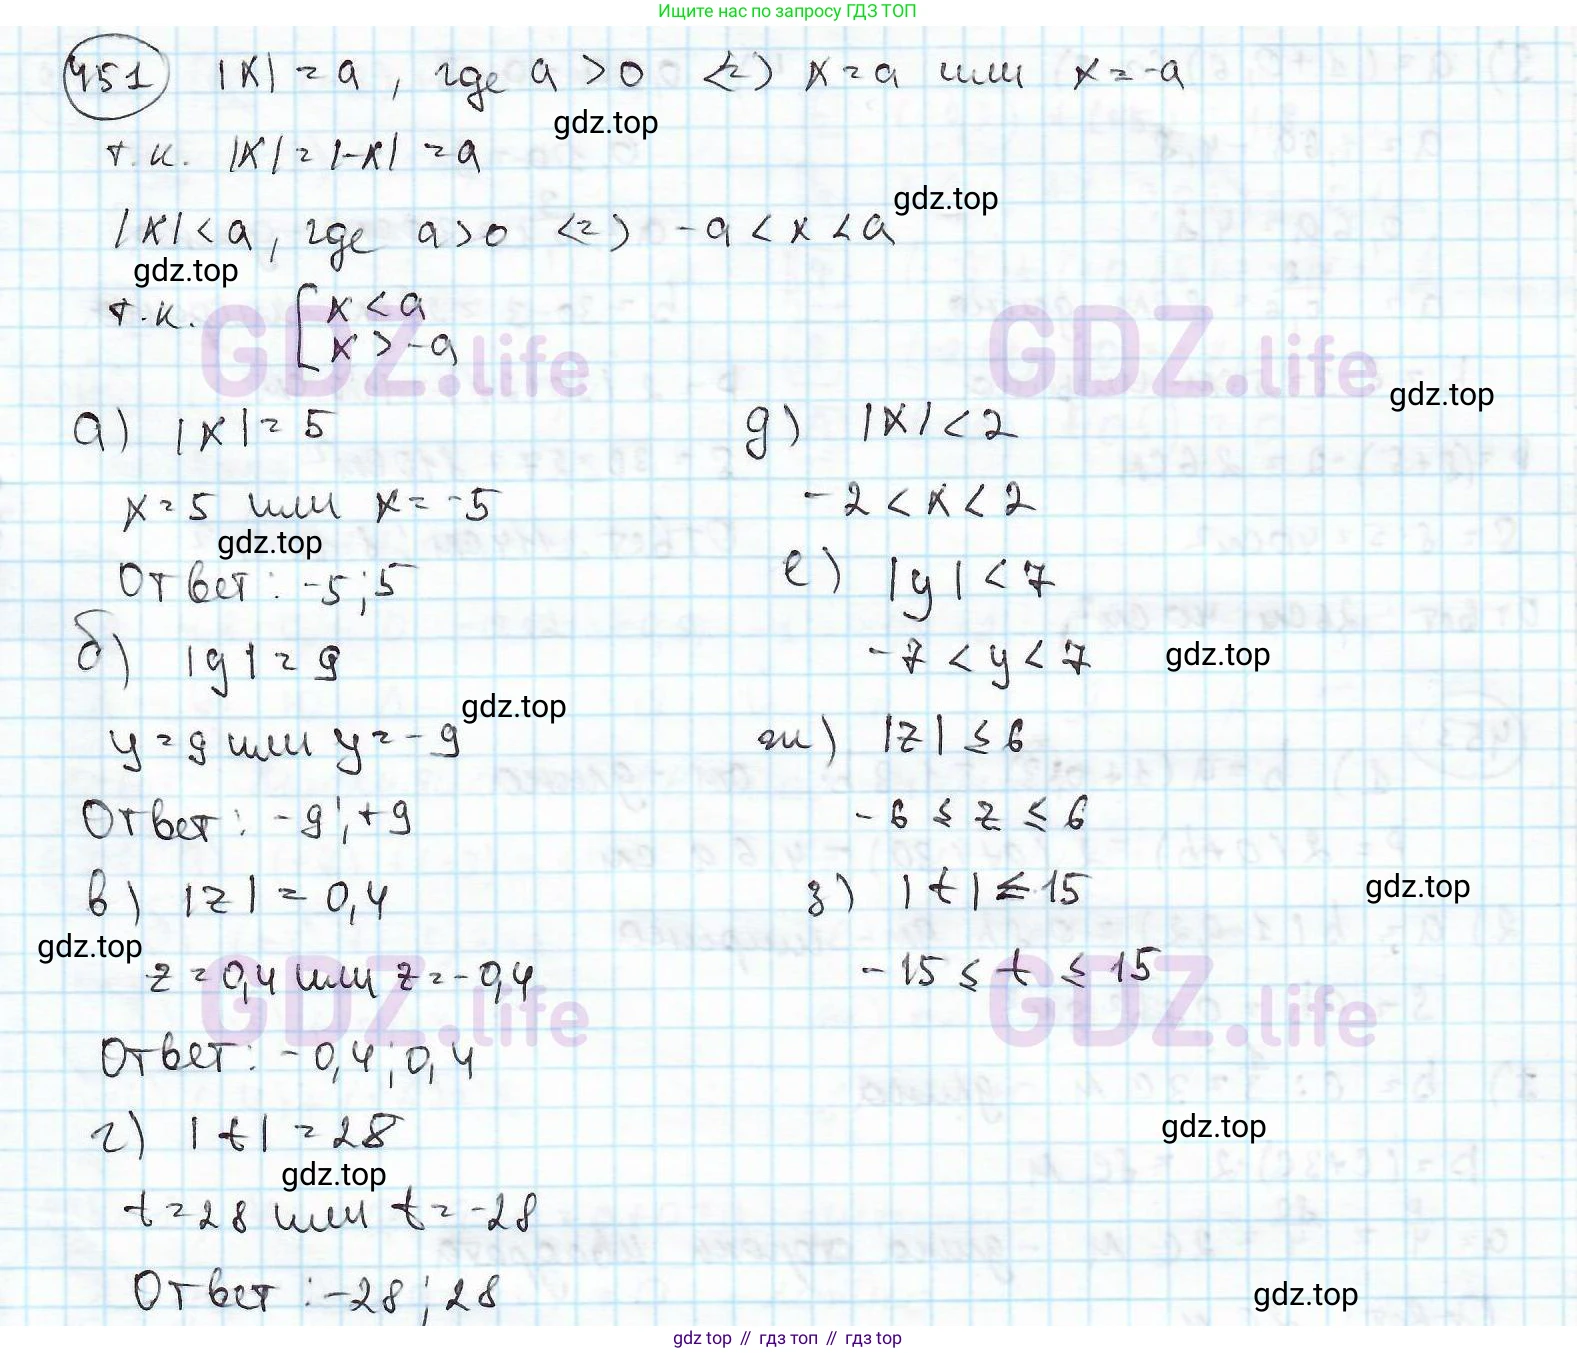 Ищите нас по запросу ГДЗ ТОП
451 |x| = a, где a > 0 <=> x = a или x = -a
gdz.top
т.к. |x| = |-x| = a
gdz.top
|x| < a, где a > 0 <=> -a < x < a
gdz.top
т.к. [ x < a
x > -a
GDZ.life GDZ.life
gdz.top
а) |x| = 5
x = 5 или x = -5
gdz.top
Ответ: -5; 5
б) |y| = 9
gdz.top
y = 9 или y = -9
Ответ: -9; +9
в) |z| = 0,4
gdz.top
z = 0,4 или z = -0,4
GDZ.life
Ответ: -0,4; 0,4
г) |t| = 28
gdz.top
t = 28 или t = -28
Ответ: -28; 28
д) |x| < 2
-2 < x < 2
е) |y| < 7
-7 < y < 7
gdz.top
ж) |z| ≤ 6
-6 ≤ z ≤ 6
з) |t| ≤ 15
gdz.top
-15 ≤ t ≤ 15
GDZ.life
gdz.top
gdz.top
gdz top // гдз топ // гдз top